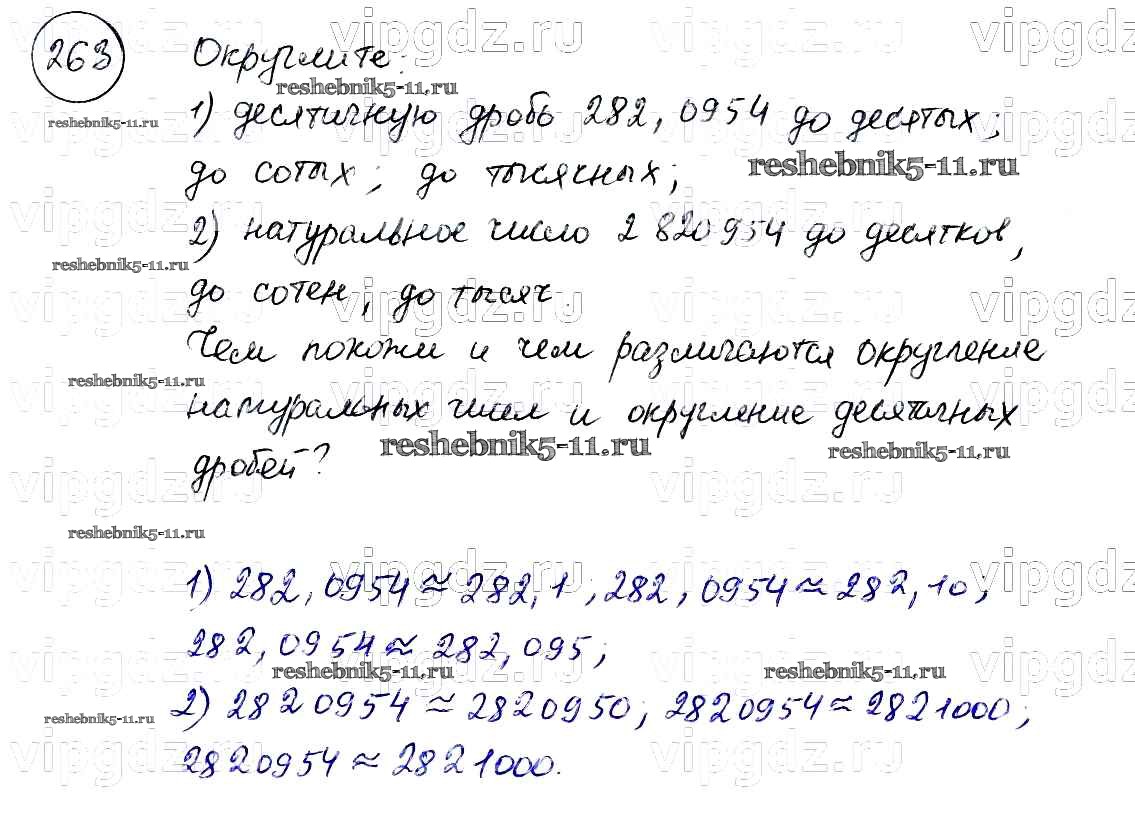 263 Округлите:
1) десятичную дробь 282,0954 до десятых;
до сотых; до тысячных;
2) натуральное число 2 820 954 до десятков,
до сотен, до тысяч.
Чем похожи и чем различаются округление
натуральных чисел и округление десятичных
дробей?
1) 282,0954 ≈ 282,1; 282,0954 ≈ 282,10;
282,0954 ≈ 282,095;
2) 2820954 ≈ 2820950; 2820954 ≈ 2821000;
2820954 ≈ 2821000.
vipgdz.ru
reshebnik5-11.ru